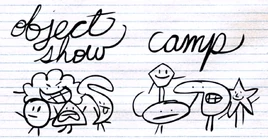 object
show
camp